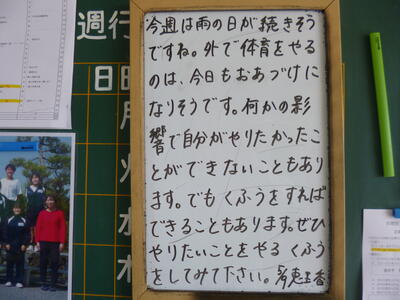 週行
日
月
火
水
木
今週は雨の日が続きそう
ですね。外で体育をやる
のは、今日もおあづけに
なりそうです。何かの影
響で自分がやりたかったこ
とができないこともあり
ます。でもくふうをすれば
できることもあります。ぜひ
やりたいことをやるくふう
をしてみて下さい。